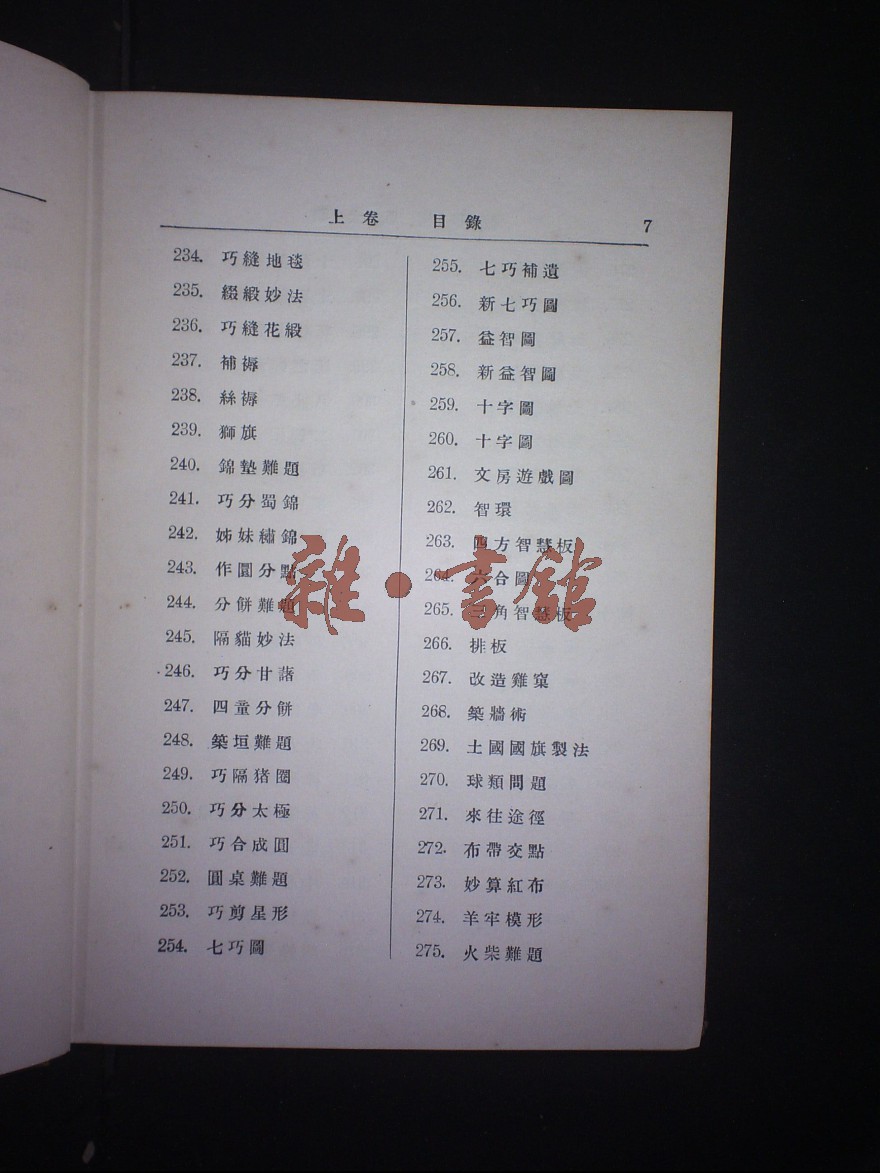 上卷 目錄 7
234. 巧縫地毯
235. 綴緞妙法
236. 巧縫花緞
237. 補褥
238. 絲褥
239. 獅旗
240. 錦墊難題
241. 巧分蜀錦
242. 姊妹繡錦
243. 作圓分點
244. 分餅難題
245. 隔貓妙法
246. 巧分甘藷
247. 四童分餅
248. 築垣難題
249. 巧隔猪圈
250. 巧分太極
251. 巧合成圓
252. 圓桌難題
253. 巧剪星形
254. 七巧圖
255. 七巧補遺
256. 新七巧圖
257. 益智圖
258. 新益智圖
259. 十字圖
260. 十字圖
261. 文房遊戲圖
262. 智環
263. 四方智慧板
264. 六合圖
265. 三角智慧板
266. 排板
267. 改造雞窠
268. 築牆術
269. 土國國旗製法
270. 球類問題
271. 來往途徑
272. 布帶交點
273. 妙算紅布
274. 羊牢模形
275. 火柴難題
雜·書館